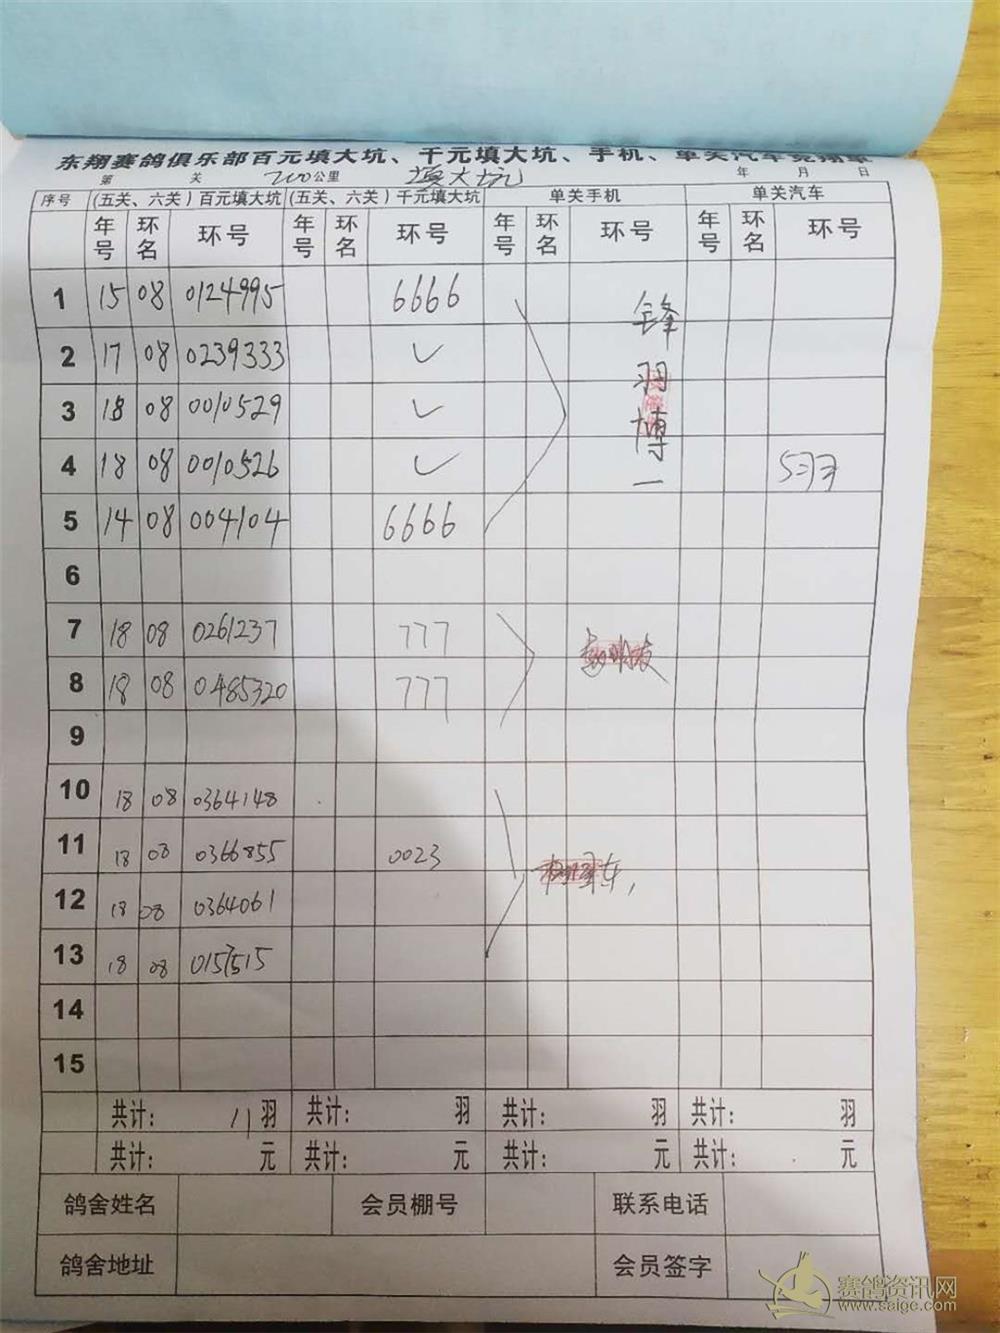 东翔赛鸽俱乐部百元填大坑、千元填大坑、手机、单关汽车竞翔单
第 关 200公里 填大坑 年 月 日
序号 (五关、六关)百元填大坑 (五关、六关)千元填大坑 单关手机 单关汽车
年号 环名 环号 年号 环名 环号 年号 环名 环号 年号 环名 环号
1 15 08 0124995 6666
2 17 08 0239333 ✓
3 18 08 0010529 ✓
4 18 08 0010526 ✓ 5羽
5 14 08 004104 6666
锋羽博一
6
7 18 08 0261237 777
8 18 08 0485320 777
9
10 18 08 0364148
11 18 08 0366855 0023
12 18 08 0364061
13 18 08 0157515
14
15
共计: 11羽 共计: 羽 共计: 羽 共计: 羽
共计: 元 共计: 元 共计: 元 共计: 元
鸽舍姓名 会员棚号 联系电话
鸽舍地址 会员签字
赛鸽资讯网
www.saige.com